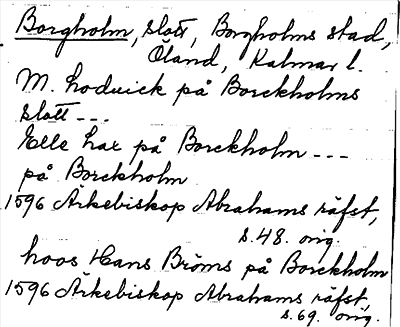 Borgholm, slott, Borgholms stad,
Öland, Kalmar l.
M. Lodwick på Borckholms
slott ---
Elle har på Borckholm ---
på Borckholm
1596 Ärkebiskop Abrahams räfst,
s. 48. orig.
hoos Hans Bröms på Borckholm
1596 Ärkebiskop Abrahams räfst,
s. 69. orig.